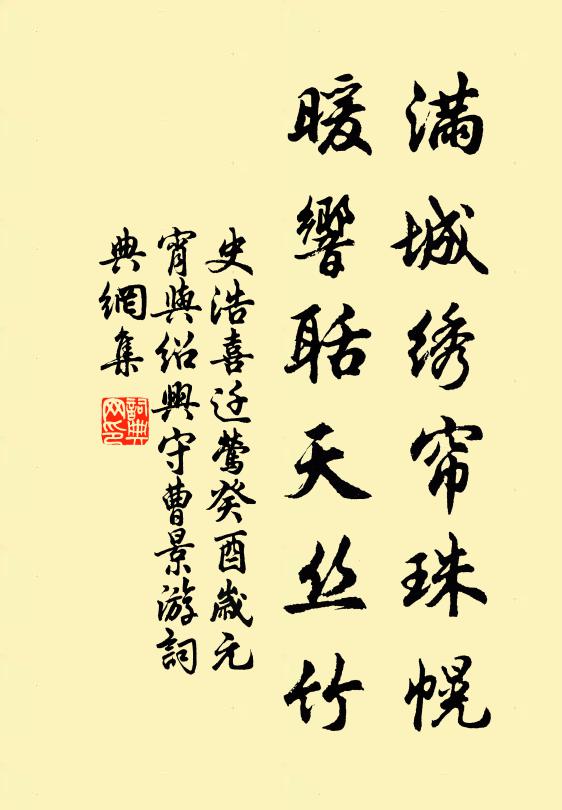 滿城绣帘珠幌
暖響聒天丝竹
史浩喜迁鶯癸酉歲元
宵與绍興守曹景游詞
典網集
詞典
网印